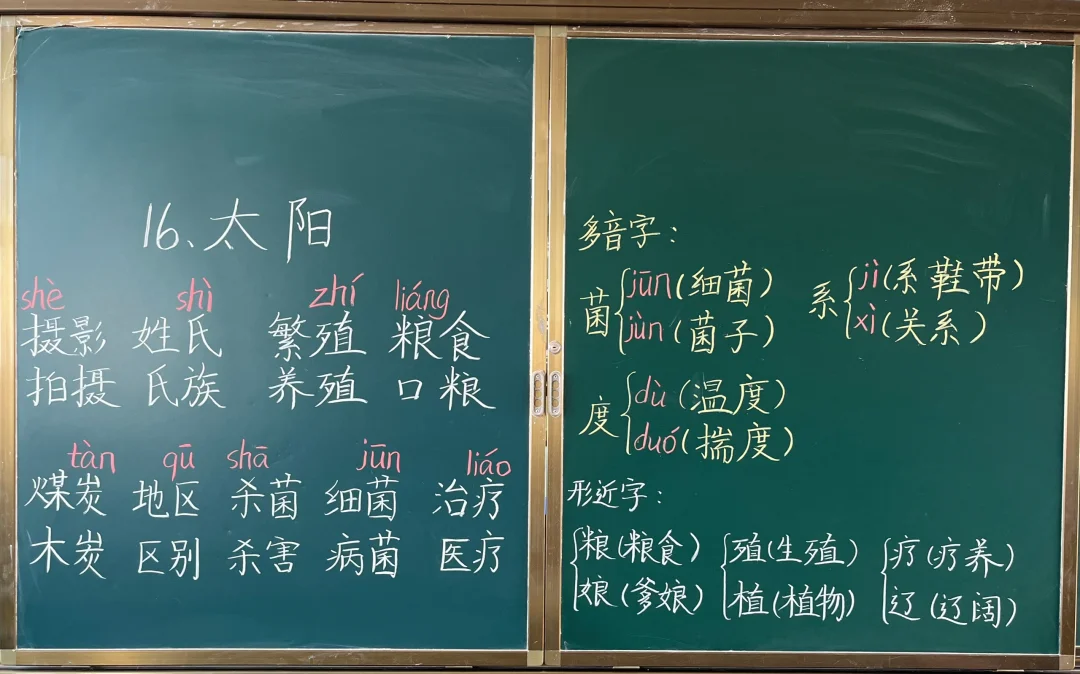 16、太阳
shè shì zhí liáng
摄影 姓氏 繁殖 粮食
拍摄 氏族 养殖 口粮
tàn qū shā jūn liáo
煤炭 地区 杀菌 细菌 治疗
木炭 区别 杀害 病菌 医疗
多音字：
菌{jūn(细菌)
jùn(菌子)
系{jì(系鞋带)
xì(关系)
度{dù(温度)
duó(揣度)
形近字：
{粮(粮食) {殖(生殖) {疗(疗养)
娘(爹娘) 植(植物) 辽(辽阔)